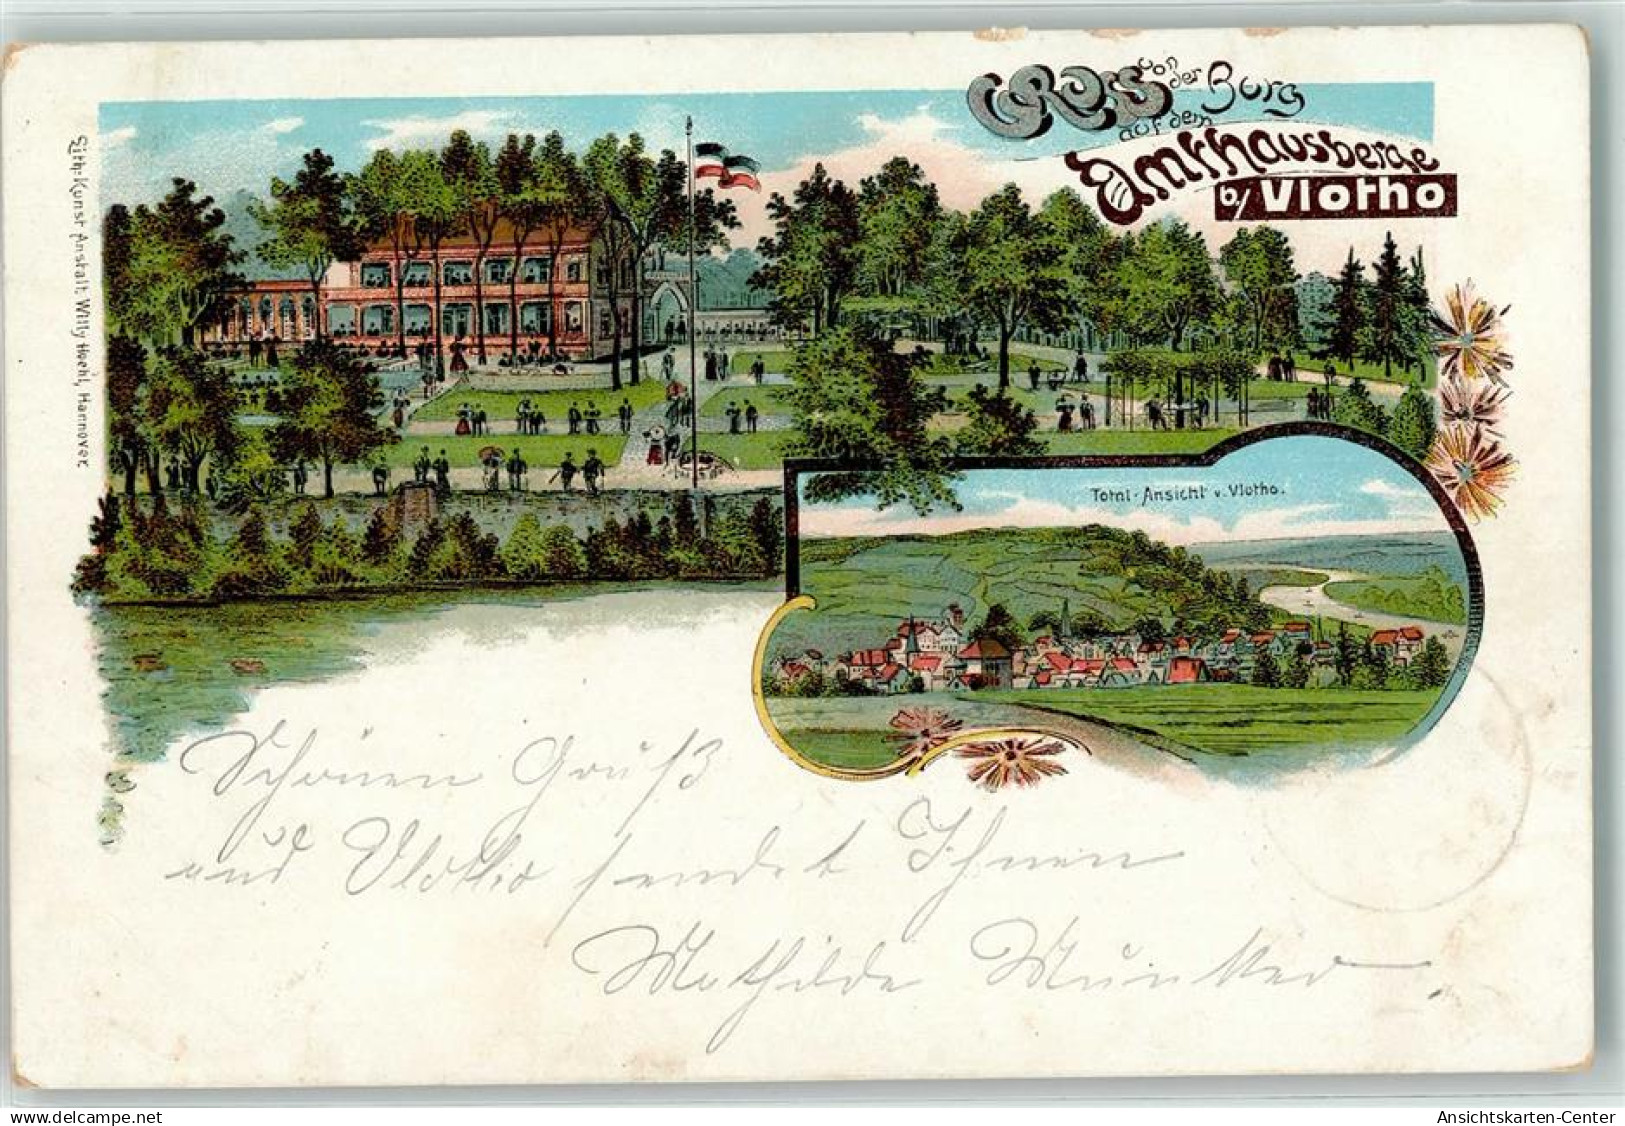 Gruss von der Burg
auf dem
Amthausberge
b/ Vlotho
Lith. Kunst Anstalt. Willy Hoehl, Hannover.
Total-Ansicht v. Vlotho.
Schönen Gruß
aus Vlotho sendet Ihnen
Mathilde
Ansichtskarten-Center